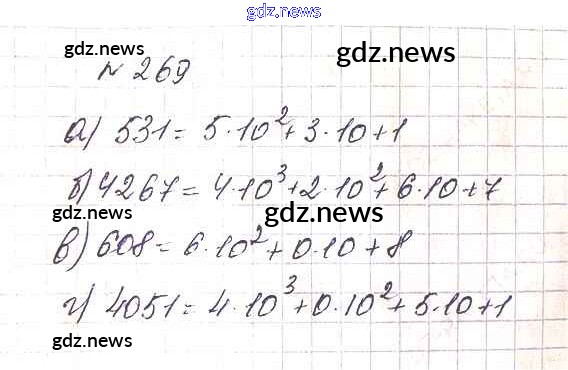 gdz.news
gdz.news
gdz.news
№ 269
а) 531 = 5·10² + 3·10 + 1
б) 4267 = 4·10³ + 2·10² + 6·10 + 7
gdz.news
gdz.news
в) 608 = 6·10² + 0·10 + 8
г) 4051 = 4·10³ + 0·10² + 5·10 + 1
gdz.news
gdz.news